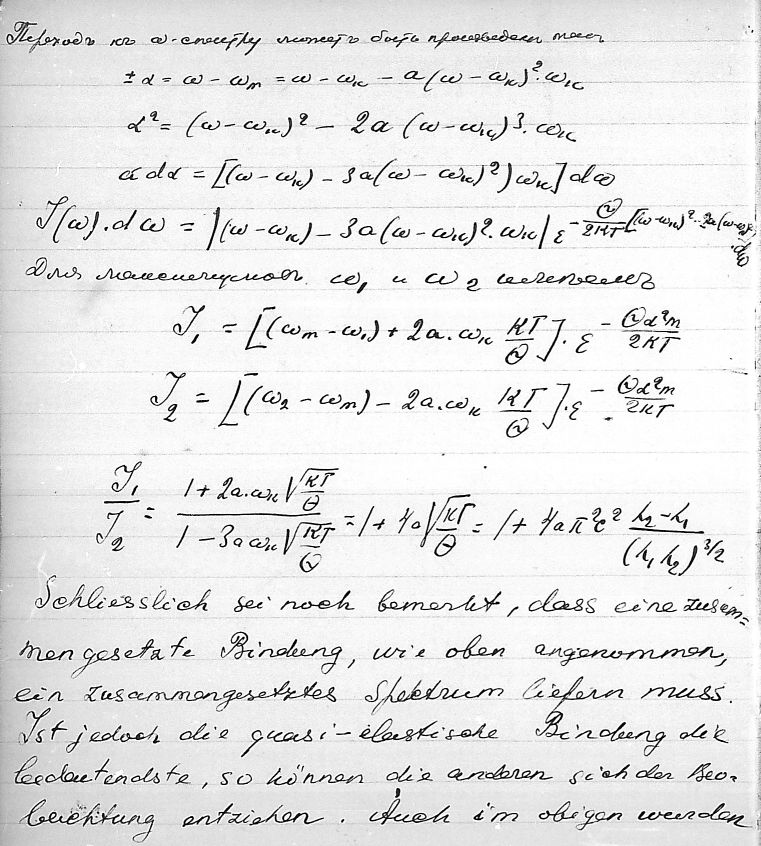 Переходъ къ ω-спектру можетъ быть произведенъ такъ
± α = ω - ωₘ = ω - ωₖ - a (ω - ωₖ)². ωₖ
α² = (ω - ωₖ)² - 2a (ω - ωₖ)³. ωₖ
α dα = [(ω - ωₖ) - 3a (ω - ωₖ)²) ωₖ] dω
J(ω). dω = |(ω - ωₖ) - 3a (ω - ωₖ)². ωₖ| ε^{-Θ/2KT [(ω-ωₖ)² - 2a(ω-ωₖ)³} dω
Для ω₁ и ω₂
J₁ = [(ωₘ - ω₁) + 2a. ωₖ KT/Θ]. ε^{-Θα²m/2KT}
J₂ = [(ω₂ - ωₘ) - 2a. ωₖ KT/Θ]. ε^{-Θα²m/2KT}
J₁/J₂ = (1 + 2a. ωₖ √(KT/Θ))/(1 - 3a ωₖ √(KT/Θ)) = 1 + 4a √(KT/Θ) = 1 + 4a π² c² (λ₂ - λ₁)/(λ₁ λ₂)^{3/2}
Schliesslich sei noch bemerkt, dass eine zusam=
mengesetzte Bindung, wie oben angenommen,
ein zusammengesetztes Spektrum liefern muss.
Ist jedoch die quasi-elastische Bindung die
bedeutendste, so können die anderen sich der Beo=
bachtung entziehen. Auch im obigen wurden